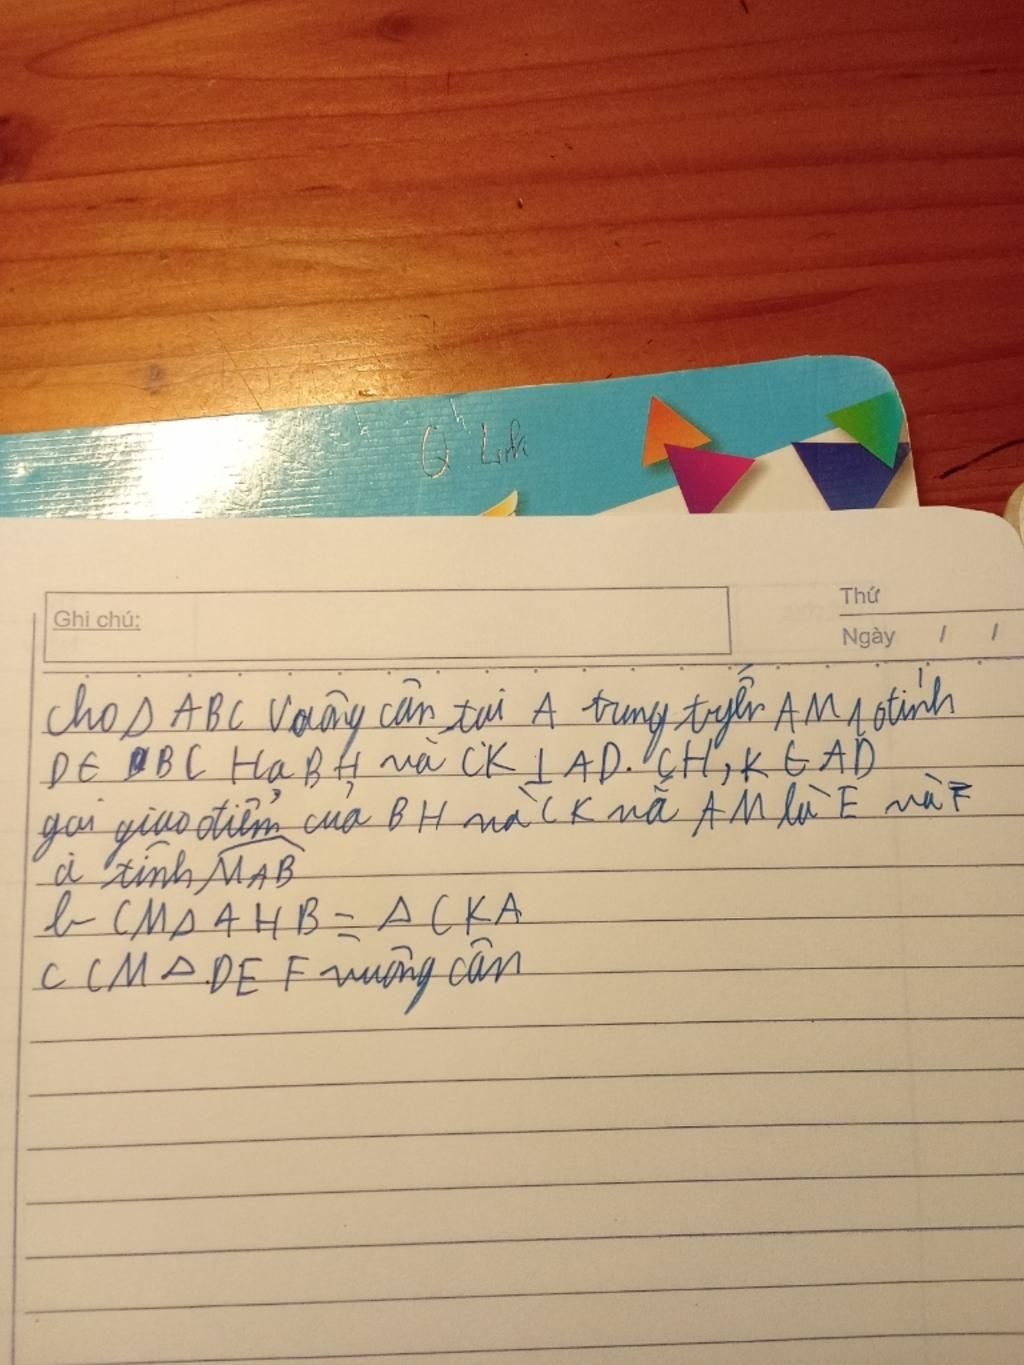 Q Linh
Ghi chú:
Thứ
Ngày / /
Cho Δ ABC Vuông cân tại A trung tuyến AM 1 điểm
D ∈ BC Hạ BH và CK ⊥ AD. CH, K ∈ AD
gọi giao điểm của BH và CK và AM là E và F
a tính MAB
b CM Δ AHB = Δ CKA
C CM Δ DEF vuông cân